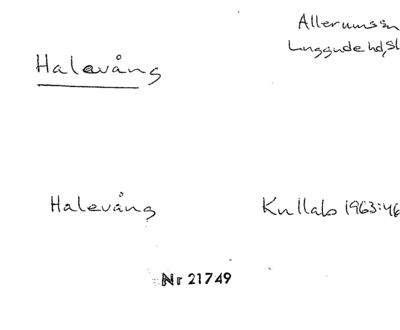 Allerums sn
Luggude hd, Sk
Halevång
Halevång Kullabo 1963:46
Nr 21749